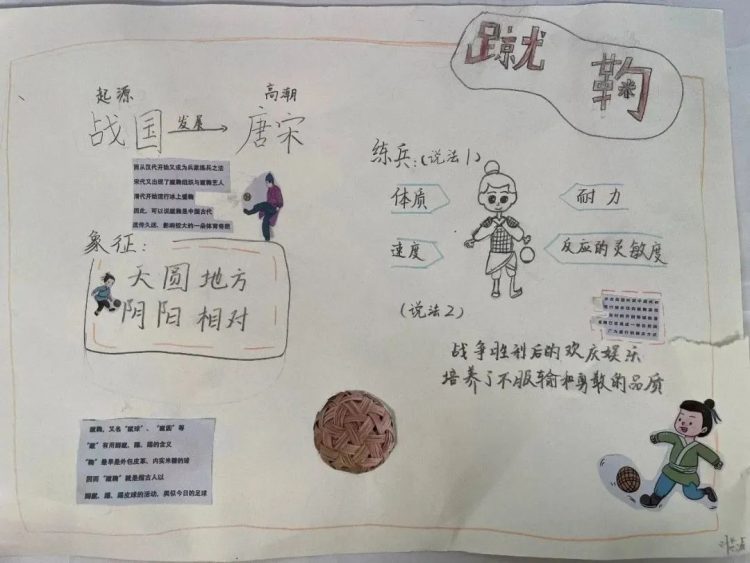 蹴鞠
起源 高潮
战国 发展 唐宋
因从汉代开始又成为兵家练兵之法
宋代又出现了蹴鞠组织与蹴鞠艺人
清代开始流行冰上蹴鞠
因此，可以说蹴鞠是中国古代
流传久远，影响较大的一朵体育奇葩
象征：
天圆地方
阴阳相对
练兵：(说法1)
体质 耐力
速度 反应的灵敏度
(说法2)
战争胜利后的欢庆娱乐
培养了不服输和勇敢的品质
蹴鞠，又名"蹴球"、"蹴圆"等
"蹴"有用脚蹴、蹋、踢的含义
"鞠"最早是外包皮革、内实米糠的球
因而"蹴鞠"就是指古人以
脚蹴、蹋、踢皮球的活动，类似今日的足球